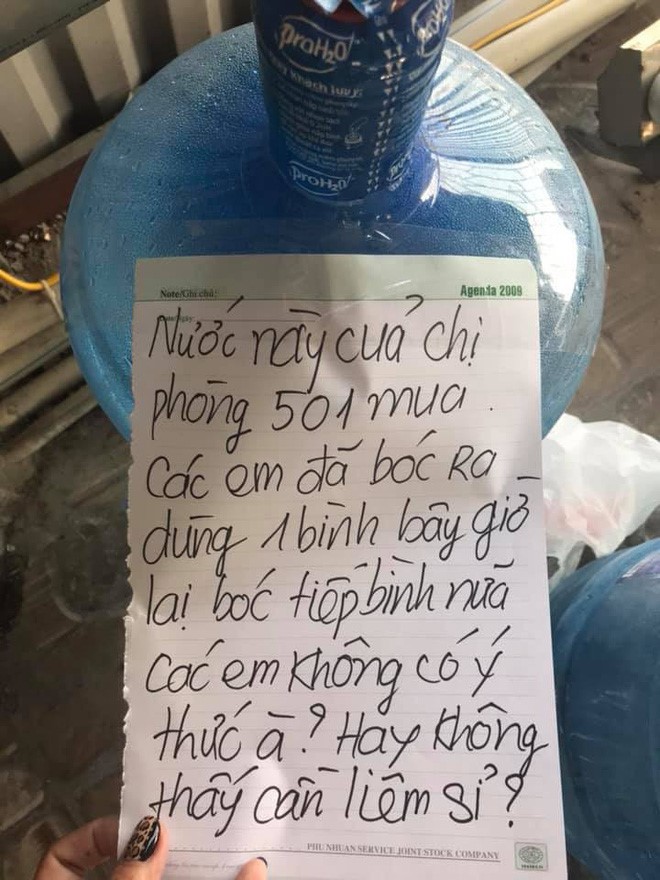 ProH₂O
Quý khách lưu ý:
ProH₂O
Note/Ghi chú:
Agenda 2009
Nước này của chị
phòng 501 mua.
Các em đã bóc ra
dùng 1 bình bây giờ
lại bóc tiếp bình nữa
Các em không có ý
thức à? Hay không
thấy cần liêm sỉ?
PHU NHUAN SERVICE JOINT STOCK COMPANY